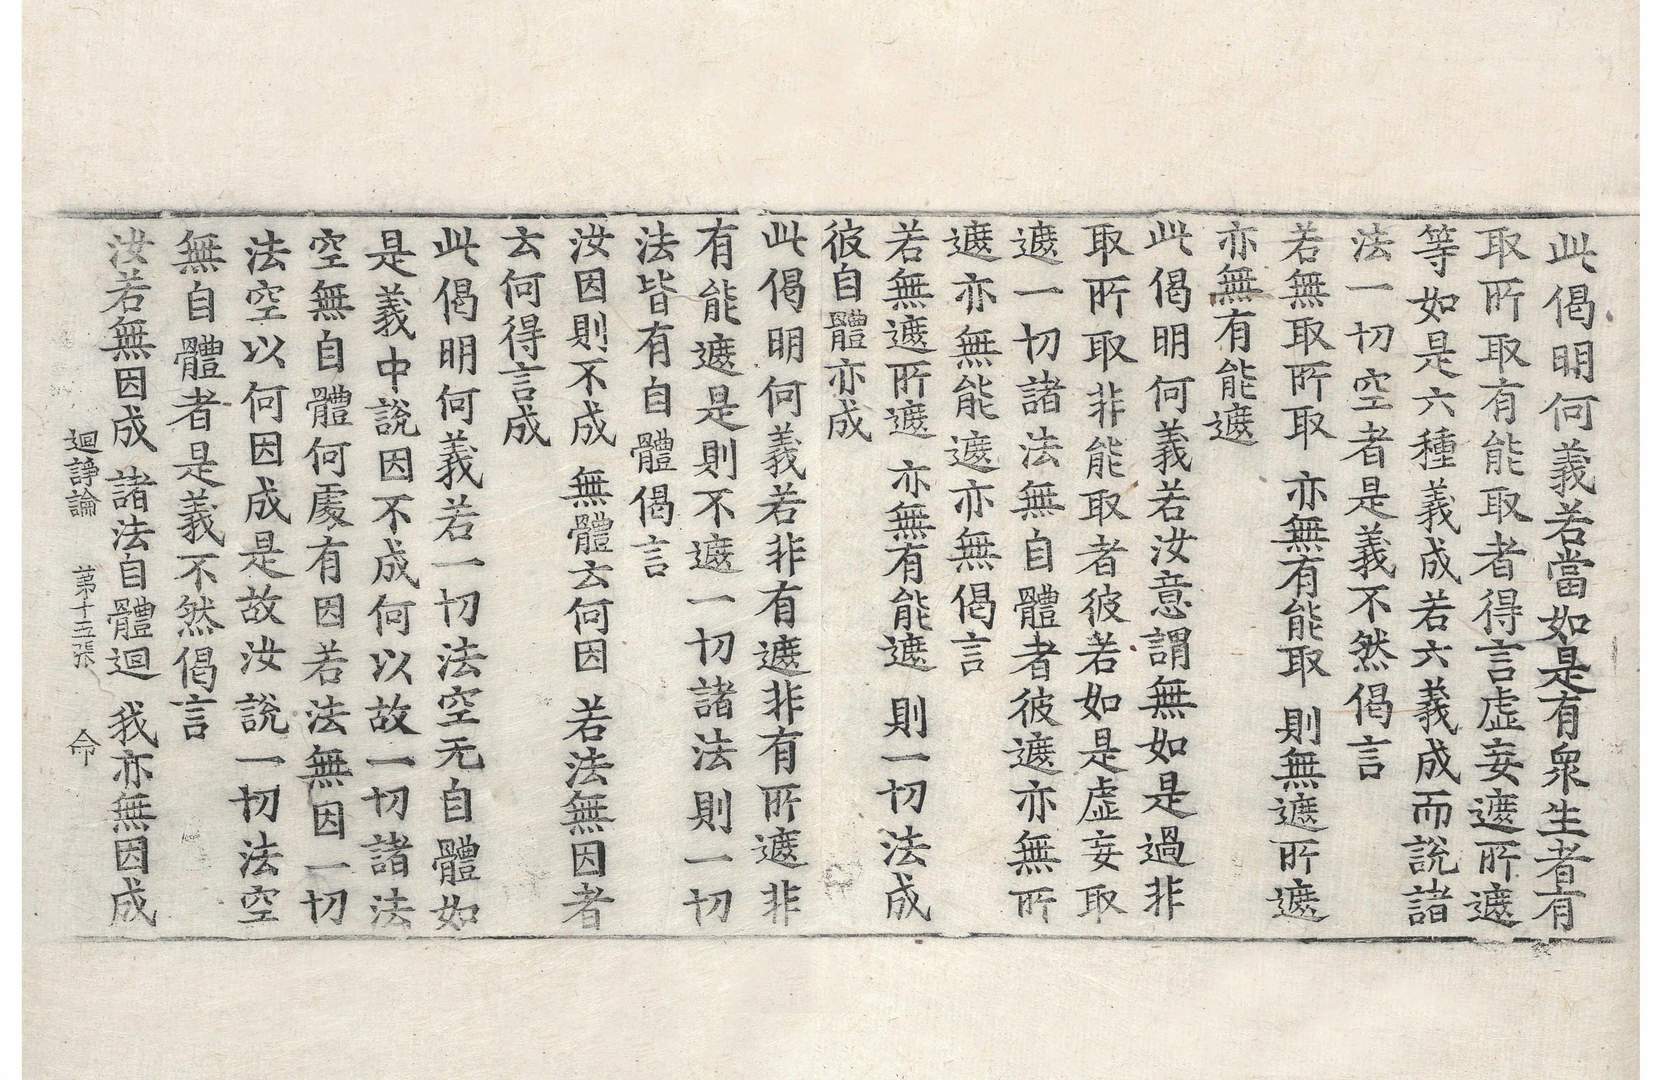 此偈明何義若當如是有衆生者有
取所取有能取者得言虛妄遮所遮
等如是六種義成若六義成而說諸
法一切空者是義不然偈言
若無取所取　亦無有能取　則無遮所遮
亦無有能遮
此偈明何義若汝意謂無如是過非
取所取非能取者彼若如是虛妄取
遮一切諸法無自體者彼遮亦無所
遮亦無能遮亦無偈言
若無遮所遮　亦無有能遮　則一切法成
彼自體亦成
此偈明何義若非有遮非有所遮非
有能遮是則不遮一切諸法則一切
法皆有自體偈言
汝因則不成　無體云何因　若法無因者
云何得言成
此偈明何義若一切法空无自體如
是義中說因不成何以故一切諸法
空無自體何處有因若法無因一切
法空以何因成是故汝說一切法空
無自體者是義不然偈言
汝若無因成　諸法自體迴　我亦無因成
迴諍論　第十五張　命